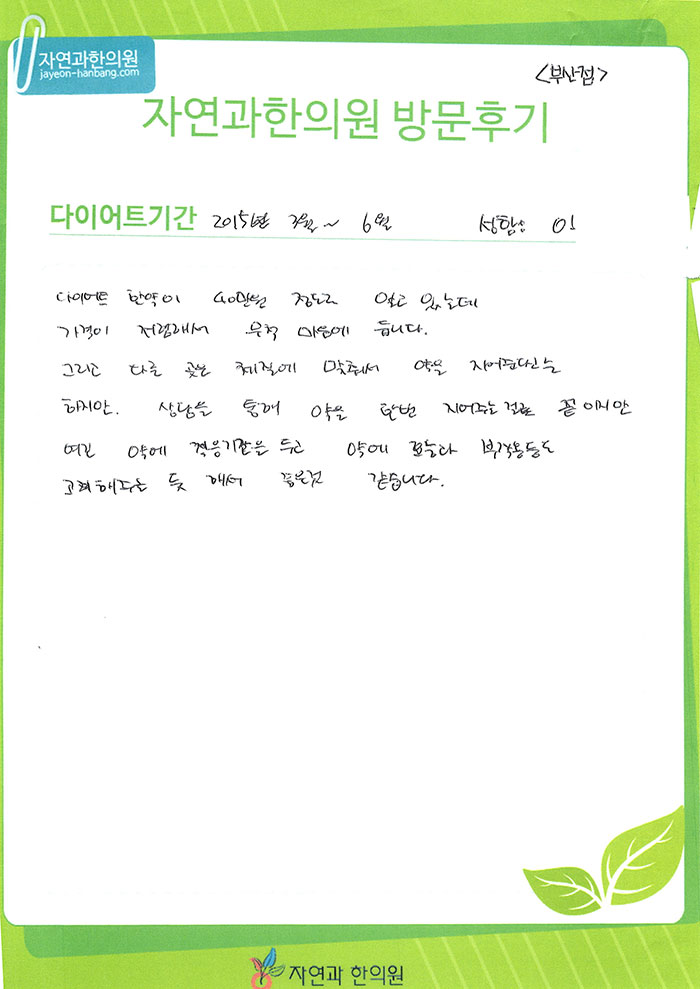 자연과한의원
jayeon-hanbang.com
<부산점>
자연과한의원 방문후기
다이어트기간 2015년 3월 ~ 6월 성함: 이
다이어트 한약이 40만원 정도로 알고 있는데
가격이 저렴해서 무척 마음에 듭니다.
그리고 다른 곳은 체질에 맞춰서 약을 지어준다는
하지만. 상담을 통해 약을 한번 지어주는걸로 끝이지만
여긴 약에 적응기간을 두고 약에 효능과 부작용등도
고려해주는 듯 해서 좋은것 같습니다.
자연과 한의원